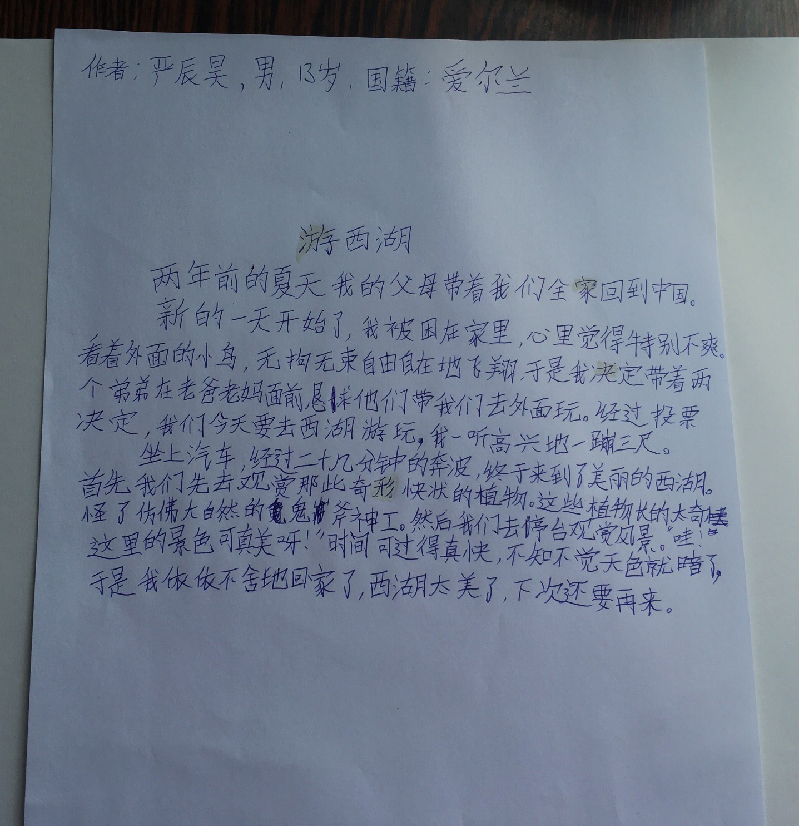 作者：严辰昊，男，13岁，国籍：爱尔兰
游西湖
两年前的夏天我的父母带着我们全家回到中国。
新的一天开始了，我被困在家里，心里觉得特别不爽。
看着外面的小鸟，无拘无束自由自在地飞翔，于是我决定带着两
个弟弟在老爸老妈面前恳求他们带我们去外面玩。经过投票
决定，我们今天要去西湖游玩。我一听高兴地一蹦三尺。
坐上汽车，经过二十几分钟的奔波，终于来到了美丽的西湖。
首先我们先去观赏那些奇形快状的植物。这些植物长的太奇
怪了仿佛大自然的鬼斧神工。然后我们去停台观赏风景。“哇！
这里的景色可真美呀！”时间可过得真快，不知不觉天色就暗了，
于是我依依不舍地回家了，西湖太美了，下次还要再来。